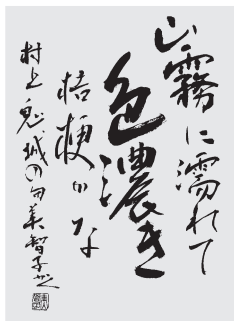 山霧に濡れて
色濃き
桔梗かな
村上鬼城の句 美智子書